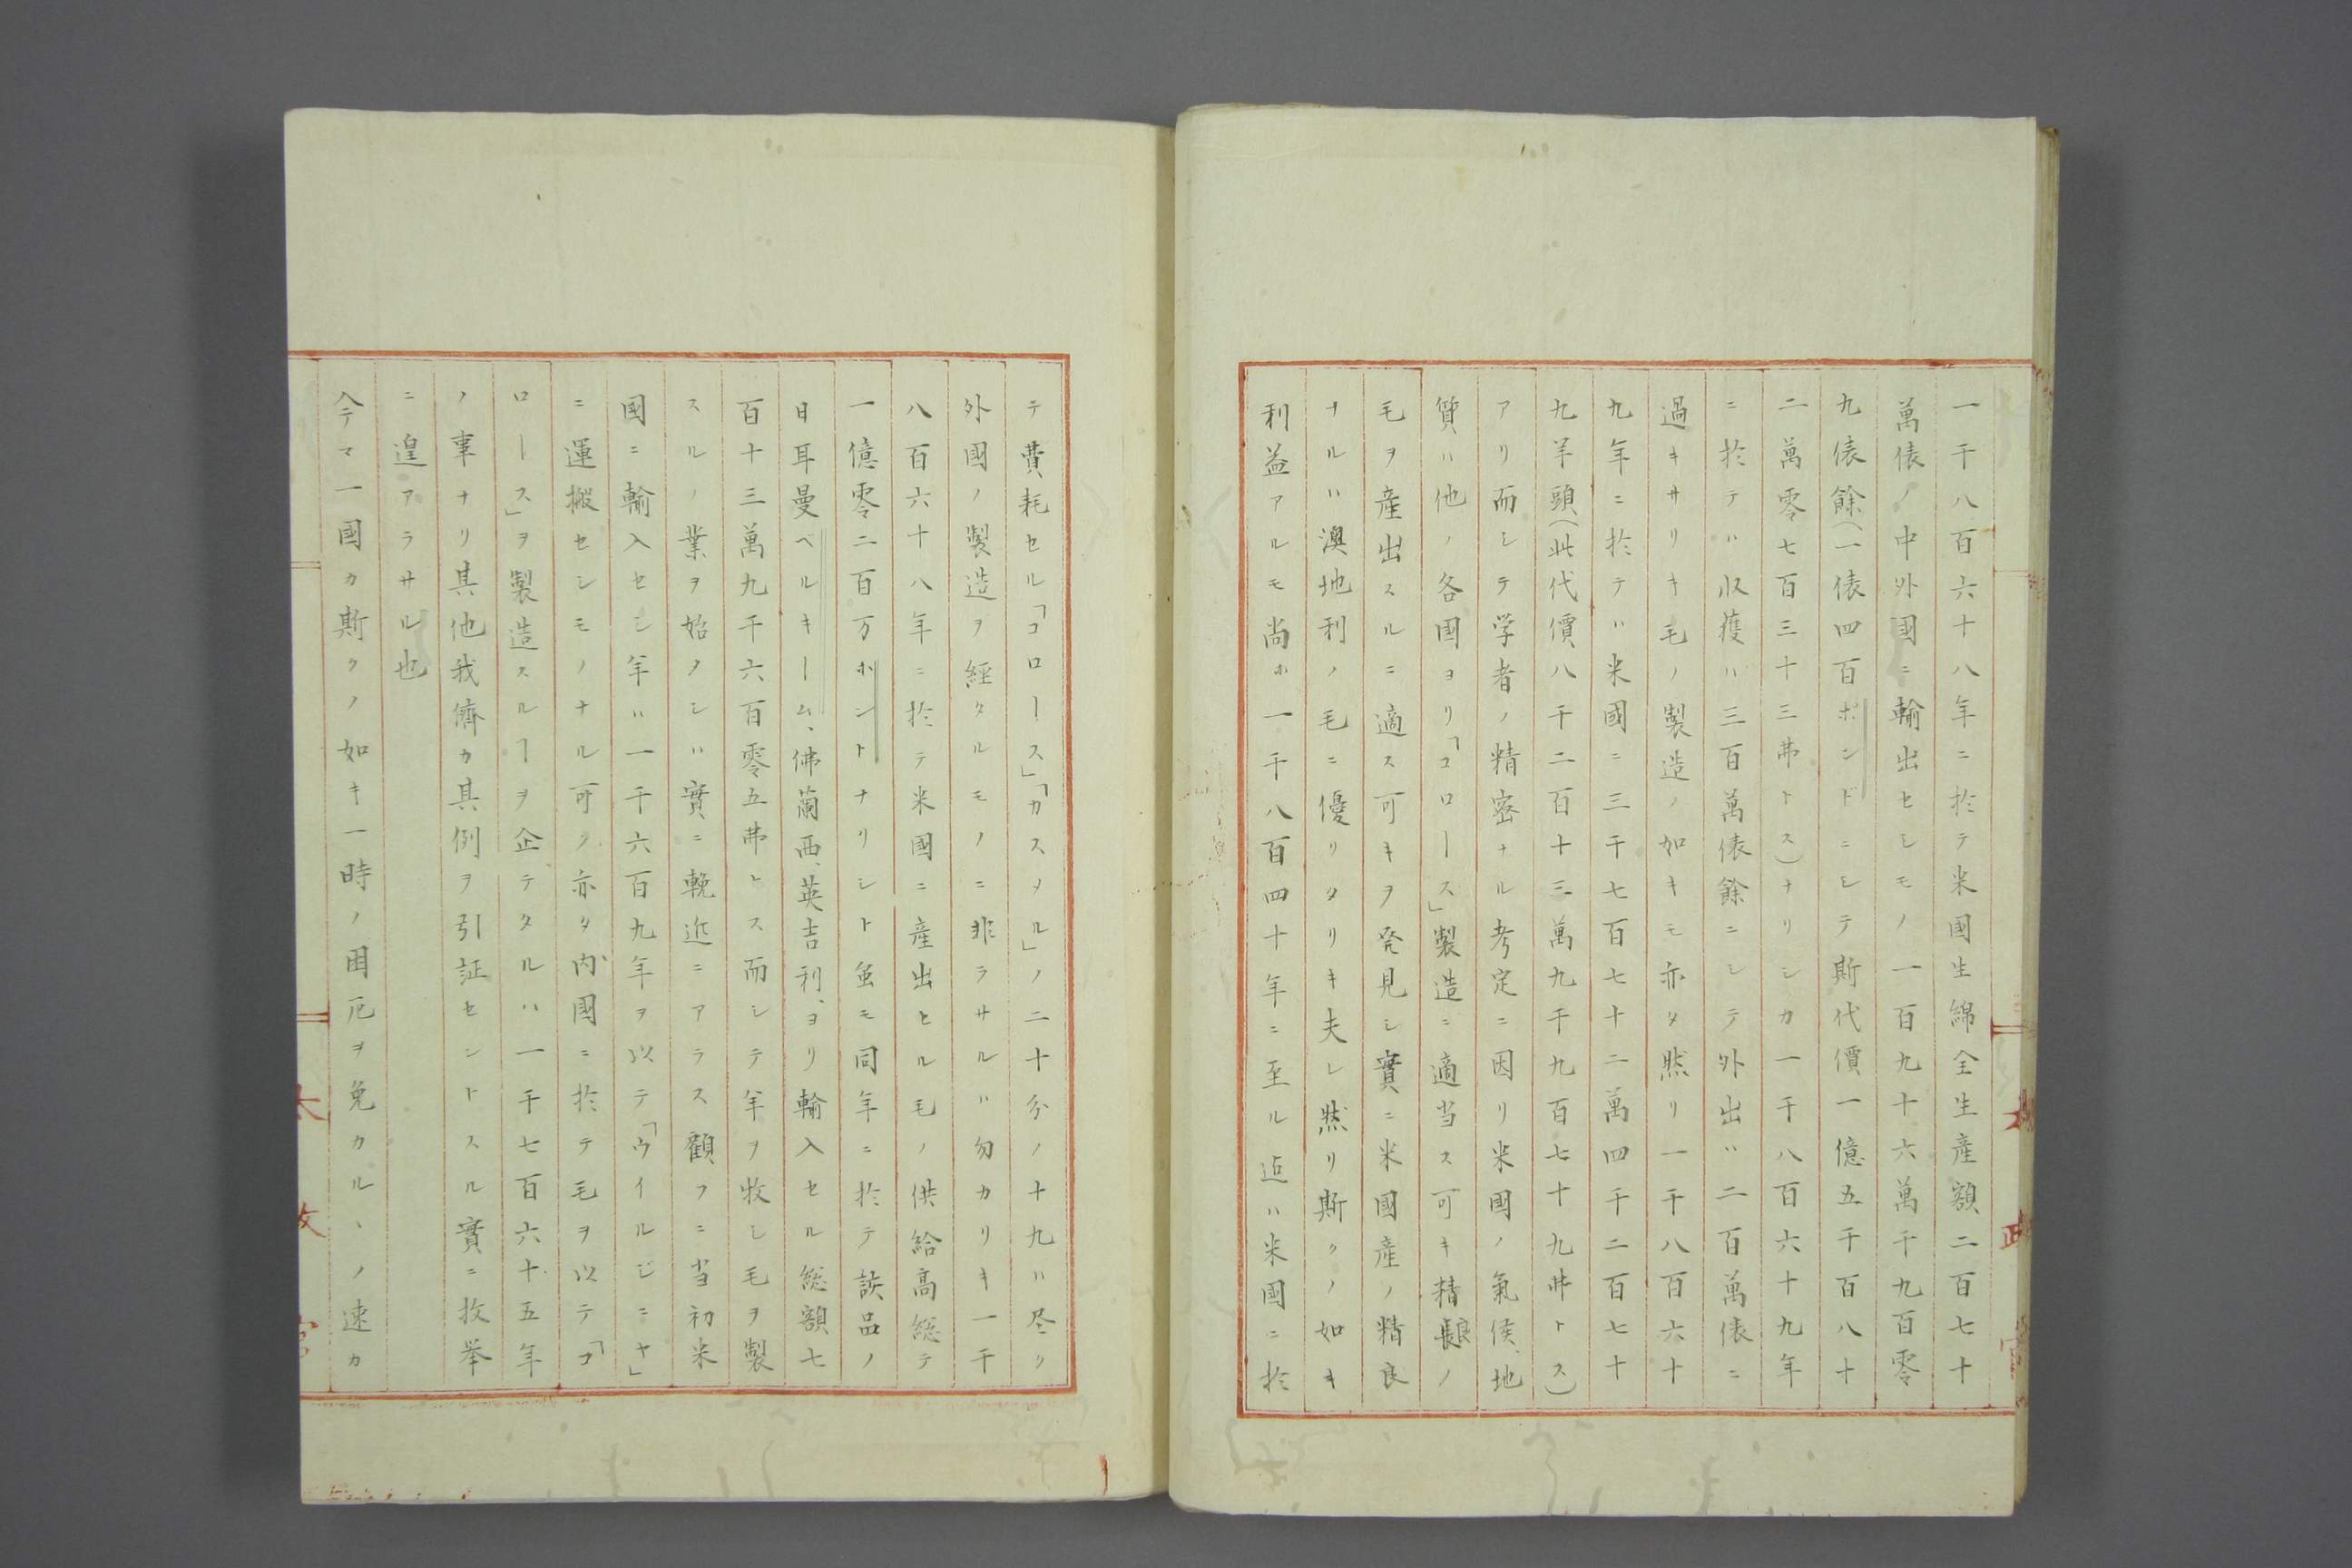 一千八百六十八年ニ於テ米國生綿全生産額二百七十
萬俵ノ中外國ニ輸出セシモノ一百九十六萬千九百零
九俵餘(一俵四百ポンドニシテ斯代價一億五千百八十
二萬零七百三十三弗トス)ナリシカ一千八百六十九年
ニ於テハ収獲ハ三百萬俵餘ニシテ外出ハ二百萬俵ニ
過キサリキ毛ノ製造ノ如キモ亦タ然リ一千八百六十
九年ニ於テハ米國ニ三千七百七十二萬四千二百七十
九羊頭(此代價八千二百十三萬九千九百七十九弗トス)
アリ而シテ学者ノ精密ナル考定ニ因リ米國ノ氣侯、地
質ハ他ノ各國ヨリ「コロース」製造ニ適当ス可キ精良ノ
毛ヲ産出スルニ適ス可キヲ発見シ實ニ米國産ノ精良
ナルハ澳地利ノ毛ニ優リタリキ夫レ然リ斯クノ如キ
利益アルモ尚ホ一千八百四十年ニ至ル迠ハ米國ニ於
テ費耗セル「コロース」「カスメル」ノ二十分ノ十九ハ尽ク
外國ノ製造ヲ經タルモノニ非ラサルハ勿カリキ一千
八百六十八年ニ於テ米國ニ産出セル毛ノ供給高総テ
一億零二百万ホントナリシト虽モ同年ニ於テ該品ノ
日耳曼ベルキーム、佛蘭西、英吉利、ヨリ輸入セル総額七
百十三萬九千六百零五弗トス而シテ羊ヲ牧シ毛ヲ製
スルノ業ヲ始メシハ實ニ輓近ニアラス顧フニ当初米
國ニ輸入セシ羊ハ一千六百九年ヲ以テ「ウイルジニヤ」
ニ運搬セシモノナル可ク亦タ内國ニ於テ毛ヲ以テ「コ
ロース」ヲ製造スルヿヲ企テタルハ一千七百六十五年
ノ事ナリ其他我儕カ其例ヲ引証セントスル實ニ枚挙
ニ遑アラサル也
今テマ一國カ斯クノ如キ一時ノ困厄ヲ免カルヽノ速カ
太政官